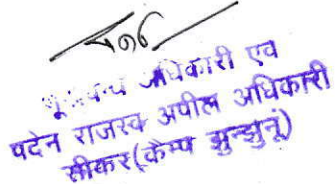 अधिकारी एवं
पदेन राजस्व अपील अधिकारी
सीकर(कैम्प झुन्झुनू)